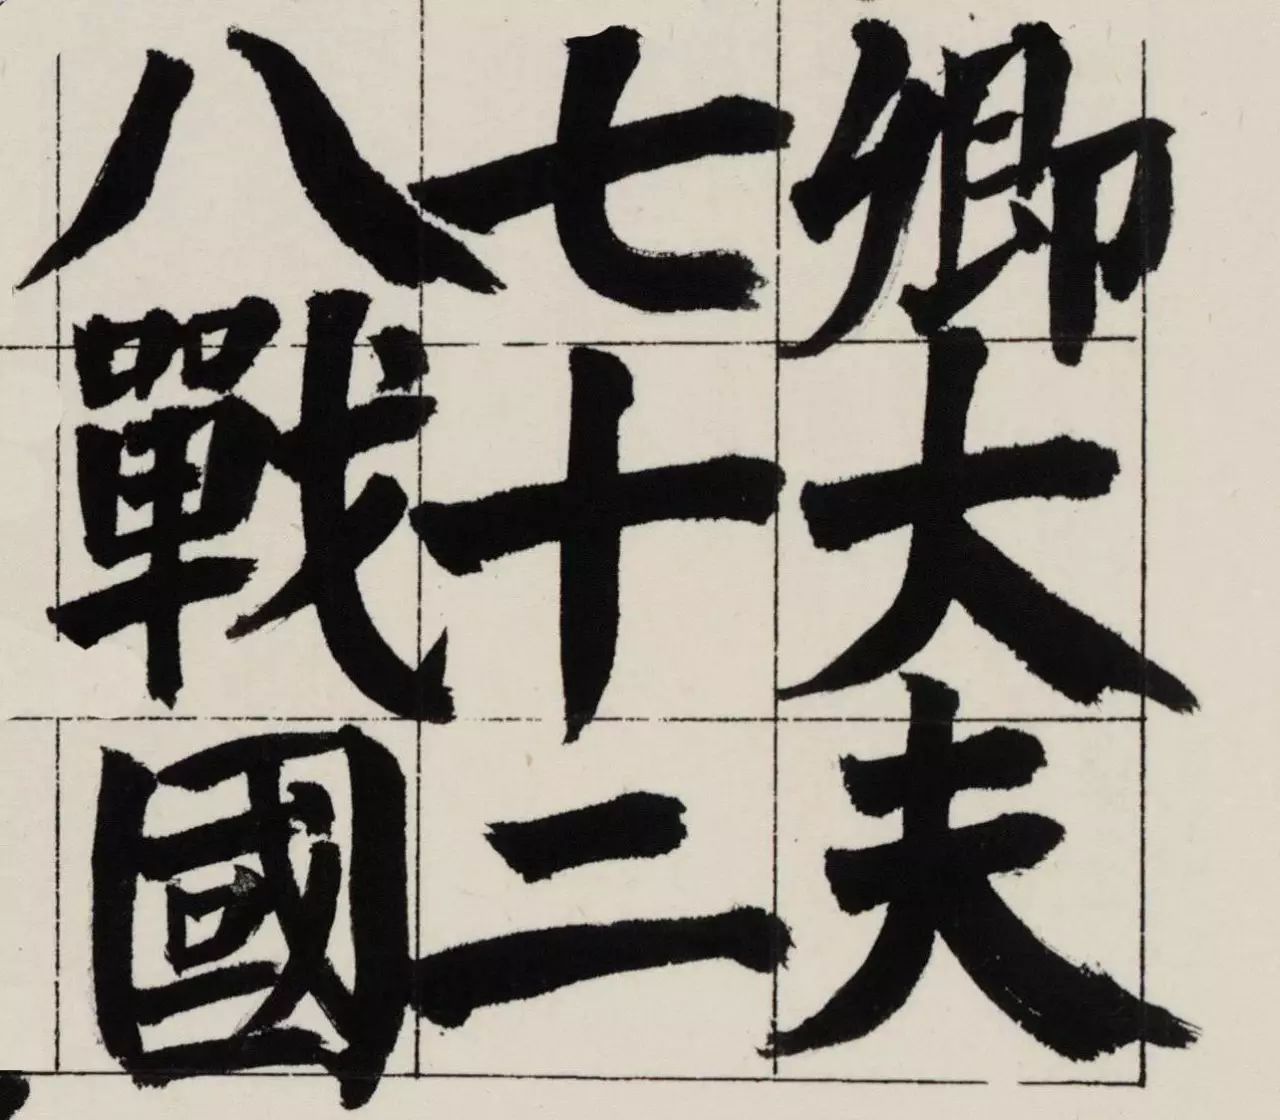 卿大夫
七十二
八戰國